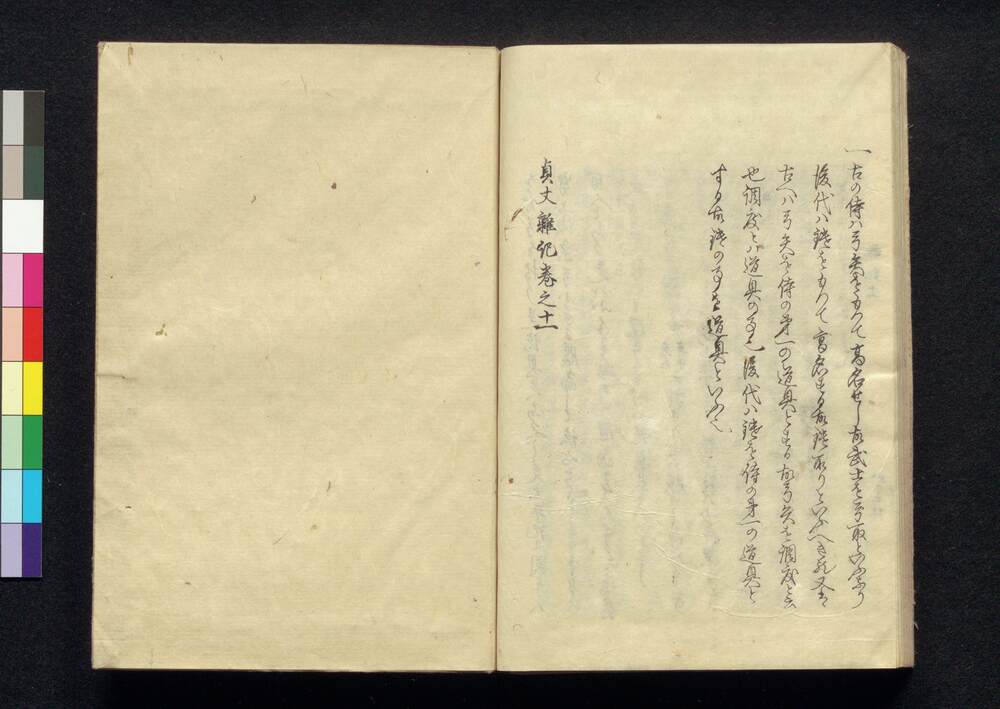 一古の侍ハ弓矢をもつて高名せし故武士を弓取といふなり
後代ハ鑓をもつて高名する故鑓取りといふへき歟又
古へハ弓矢を侍の第一の道具とする故弓矢を調度と云
也調度とハ道具の事也後代ハ鑓を侍の第一の道具と
する故鑓の事を道具といふ也
貞丈雜記卷之十一